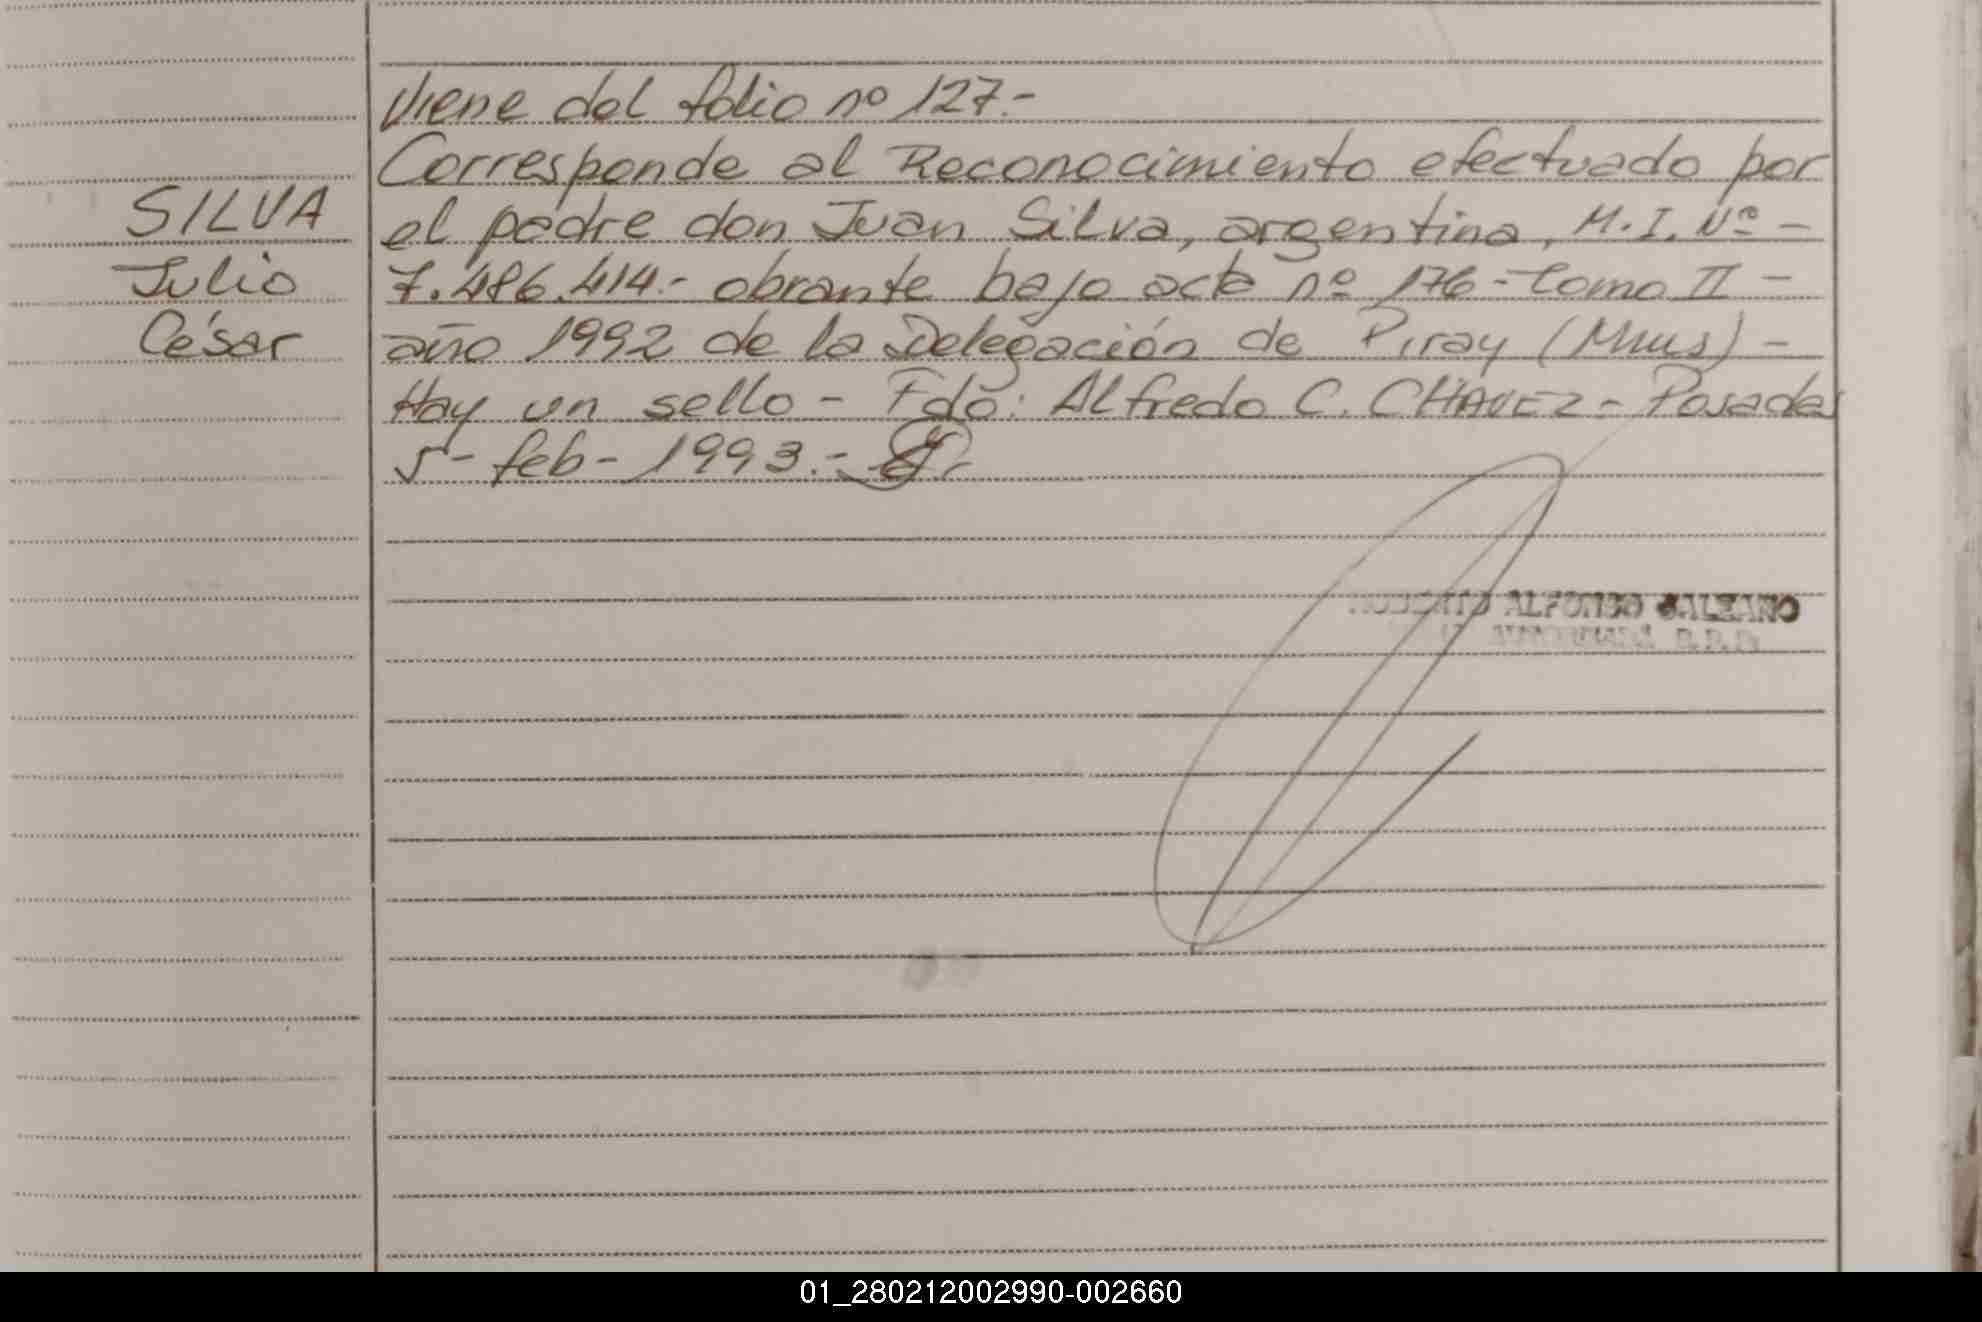 Viene del folio nº 127.-
Corresponde al Reconocimiento efectuado por
SILVA
el padre don Juan Silva, argentina, M.I. Nº -
Julio
7.486.414.- obrante bajo acta nº 176 - Tomo II -
César
año 1992 de la Delegación de Piray (Mnes) -
Hay un sello - Fdo: Alfredo C. CHAVEZ - Posadas
5 - feb - 1993.-
ALFONSO GALEANO
01_280212002990-002660